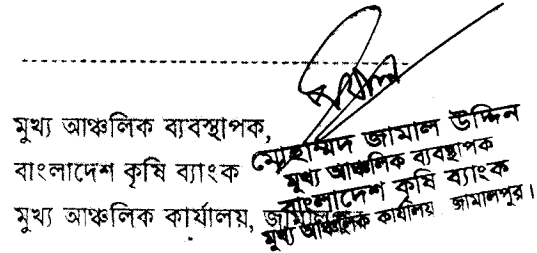 মুখ্য আঞ্চলিক ব্যবস্থাপক,
বাংলাদেশ কৃষি ব্যাংক
মুখ্য আঞ্চলিক কার্যালয়,
মোহাম্মদ জামাল উদ্দিন
মুখ্য আঞ্চলিক ব্যবস্থাপক
বাংলাদেশ কৃষি ব্যাংক
মুখ্য আঞ্চলিক কার্যালয় জামালপুর।